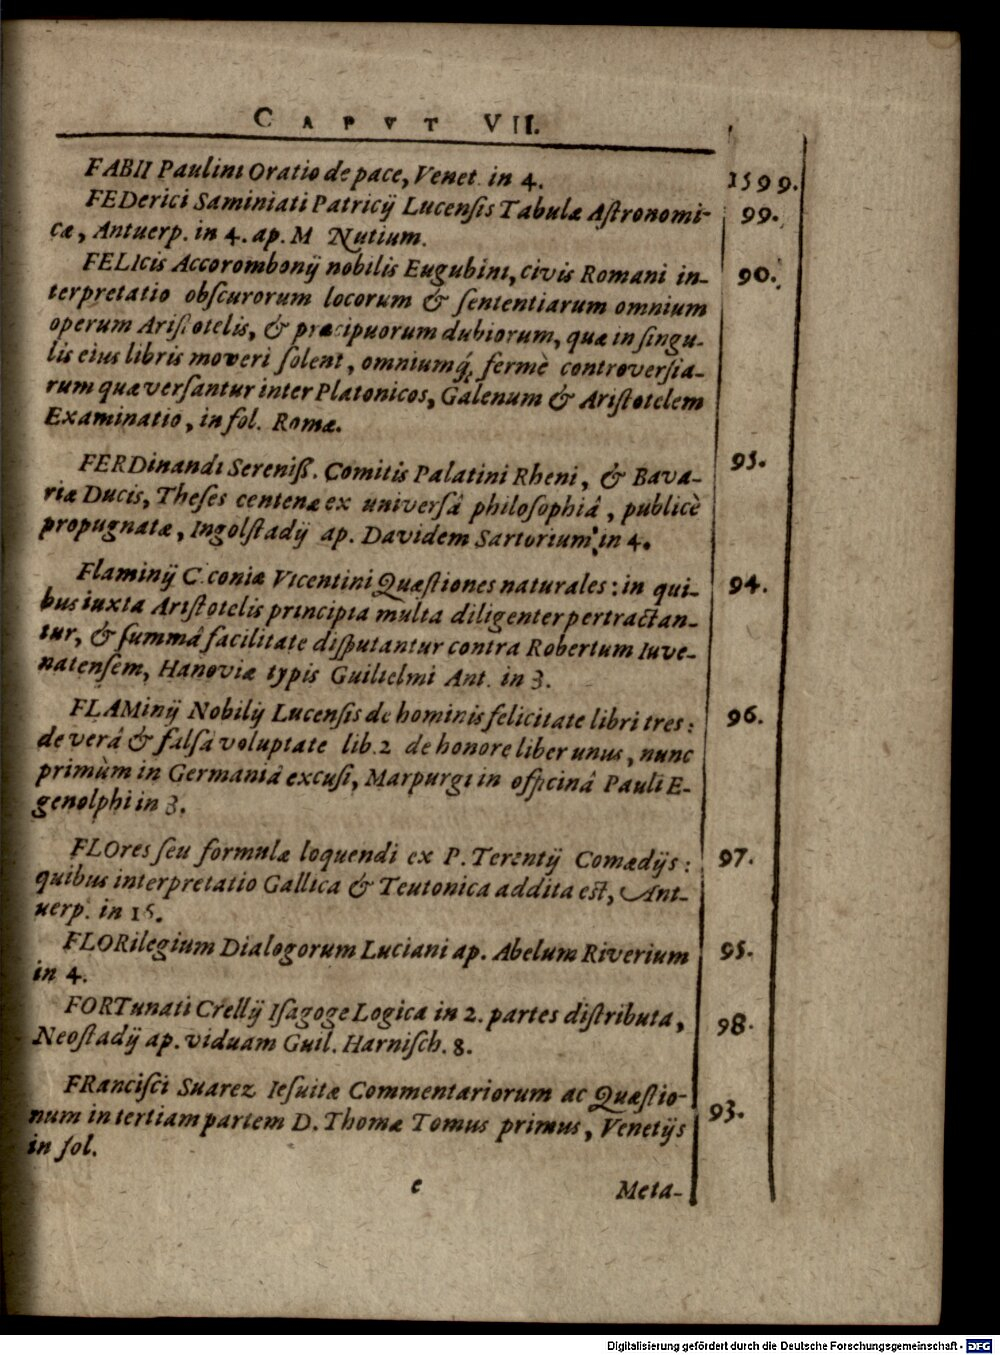 CAPVT VII.
FABII Paulini Oratio de pace, Venet. in 4. 1599.
FEDerici Saminiati Patricij Lucenſis Tabulæ Aſtronomi- 99.
cæ, Antuerp. in 4. ap. M Nutium.
FELIcis Accorombonij nobilis Eugubini, civis Romani in- 90.
terpretatio obſcurorum locorum & ſententiarum omnium
operum Ariſtotelis, & præcipuorum dubiorum, quæ in ſingu-
lis eius libris moveri ſolent, omniumq́; fermè controverſia-
rum quæ verſantur inter Platonicos, Galenum & Ariſtotelem
Examinatio, in fol. Romæ.
FERDinandi Sereniß. Comitis Palatini Rheni, & Bava- 93.
riæ Ducis, Theſes centenæ ex universâ philoſophiâ, publicè
propugnatæ, Ingolſtadij ap. Davidem Sartorium, in 4.
Flaminij C.coniæ Vicentini Quæſtiones naturales: in qui- 94.
bus iuxta Ariſtotelis principia multa diligenter pertractan-
tur, & ſummâ facilitate diſputantur contra Robertum Iuve-
natenſem, Hanoviæ typis Guilielmi Ant. in 3.
FLAMinij Nobilij Lucenſis de hominis felicitate libri tres: 96.
de verâ & falsâ voluptate lib. 2 de honore liber unus, nunc
primùm in Germaniâ excuſi, Marpurgi in officinâ Pauli E-
genolphi in 3.
FLOres ſeu formulæ loquendi ex P. Terentij Comædijs: 97.
quibus interpretatio Gallica & Teutonica addita eſt, Ant-
uerp. in 16.
FLORilegium Dialogorum Luciani ap. Abelum Riverium 95.
in 4.
FORTunati Crellij Iſagoge Logica in 2. partes diſtributa, 98.
Neoſtadij ap. viduam Guil. Harniſch. 8.
FRanciſci Suarez Ieſuitæ Commentariorum ac Quæſtio- 93.
num in tertiam partem D. Thomæ Tomus primus, Venetijs
in fol.
e Meta-
Digitalisierung gefördert durch die Deutsche Forschungsgemeinschaft - DFG